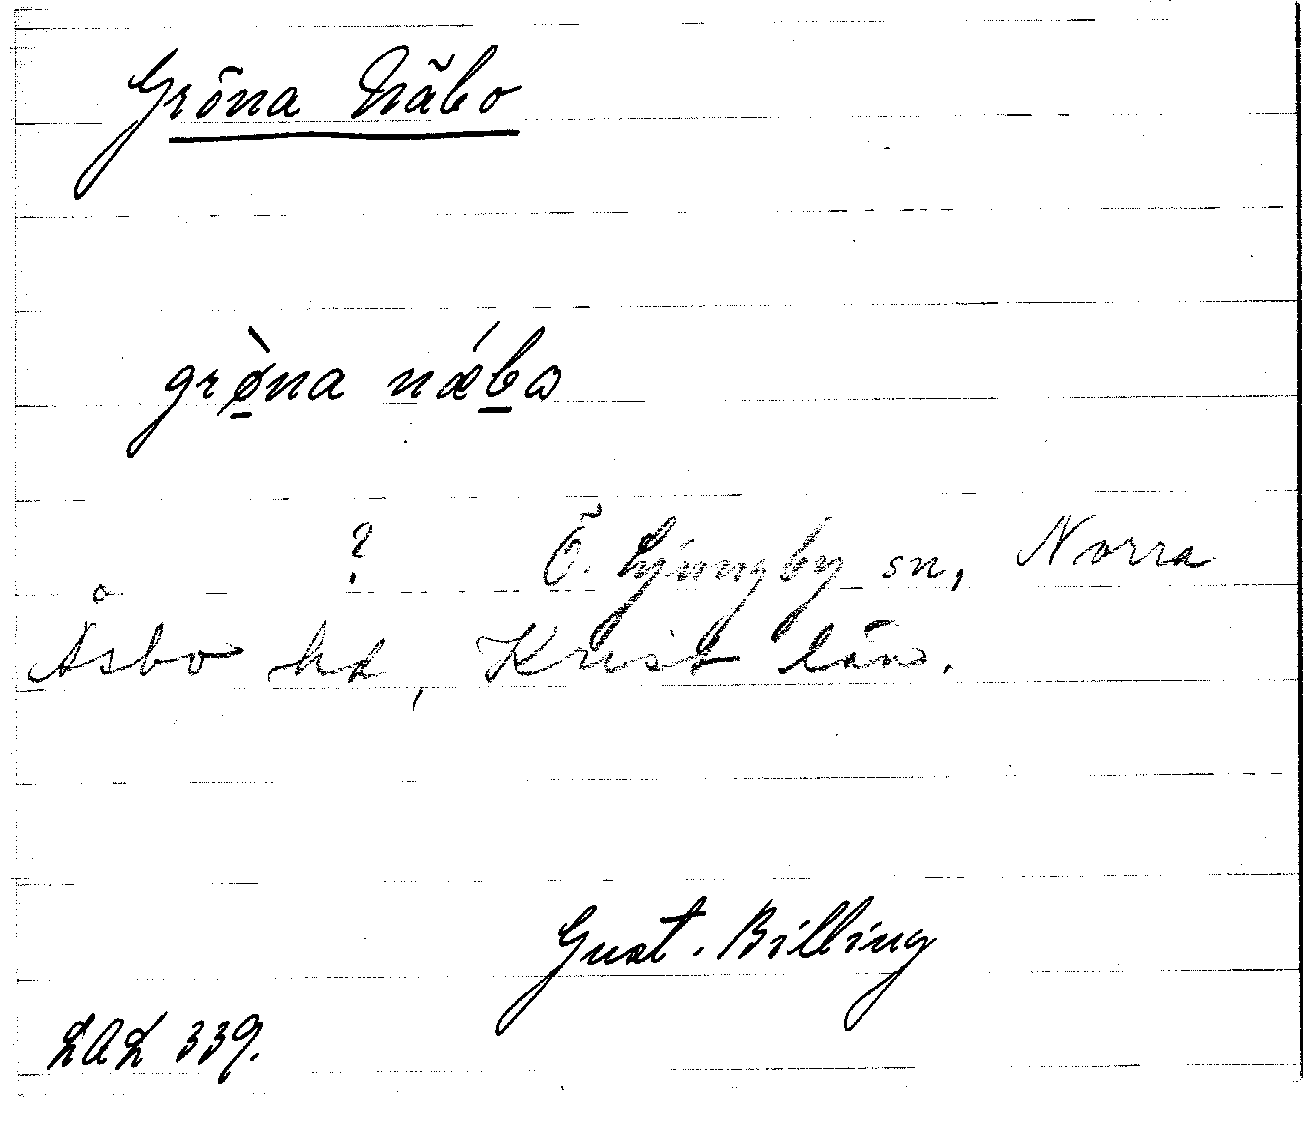 Gröna Näbo
grø̀na nǽbω
? Ö. Ljungby sn, Norra
Åsbo hd, Krist. län.
Gust. Billing
LAL 339.